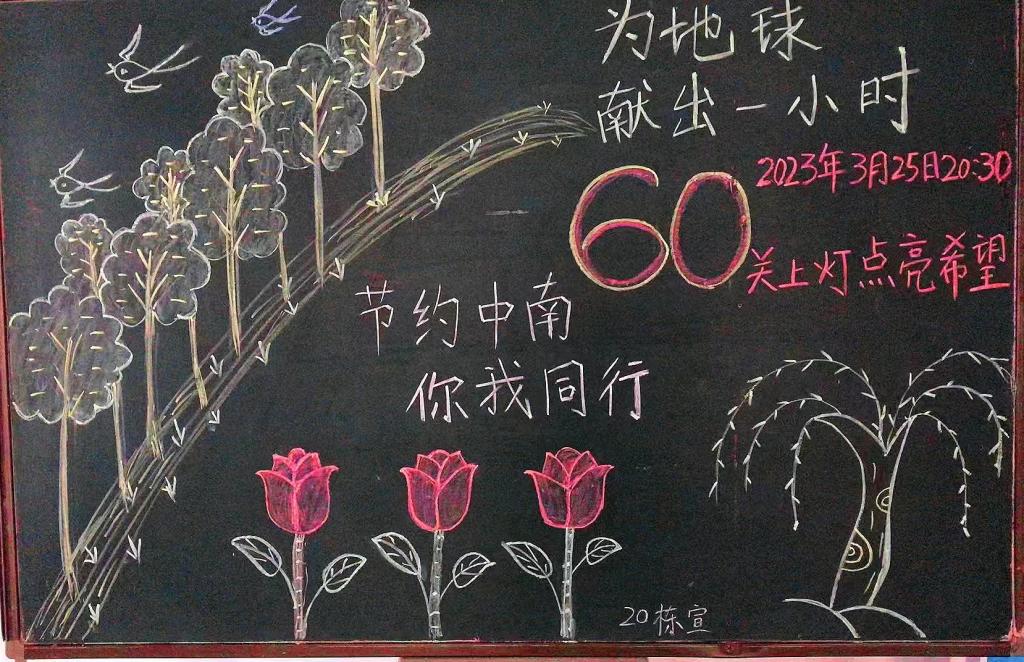 为地球
献出一小时
60
2023年3月25日20:30
关上灯点亮希望
节约中南
你我同行
20栋宣